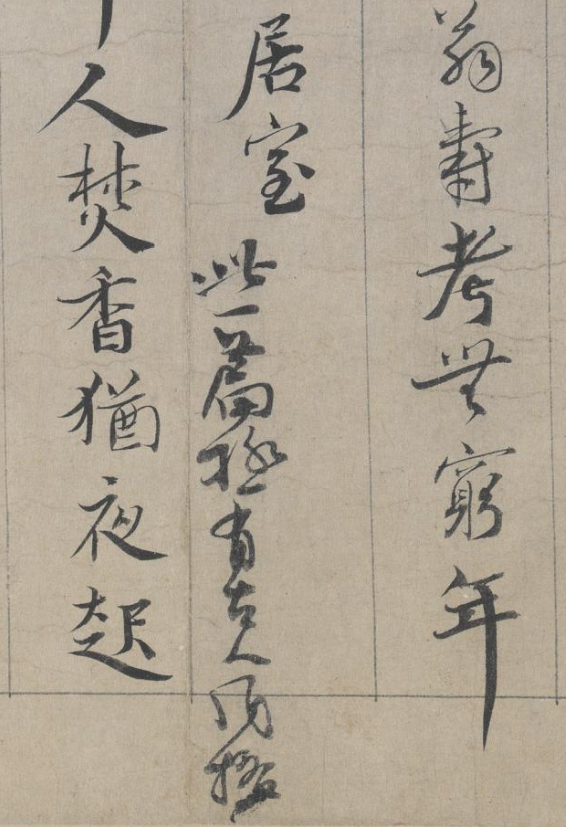 翁壽考無窮年
居室 此一篇極有古人風格
人焚香猶夜起